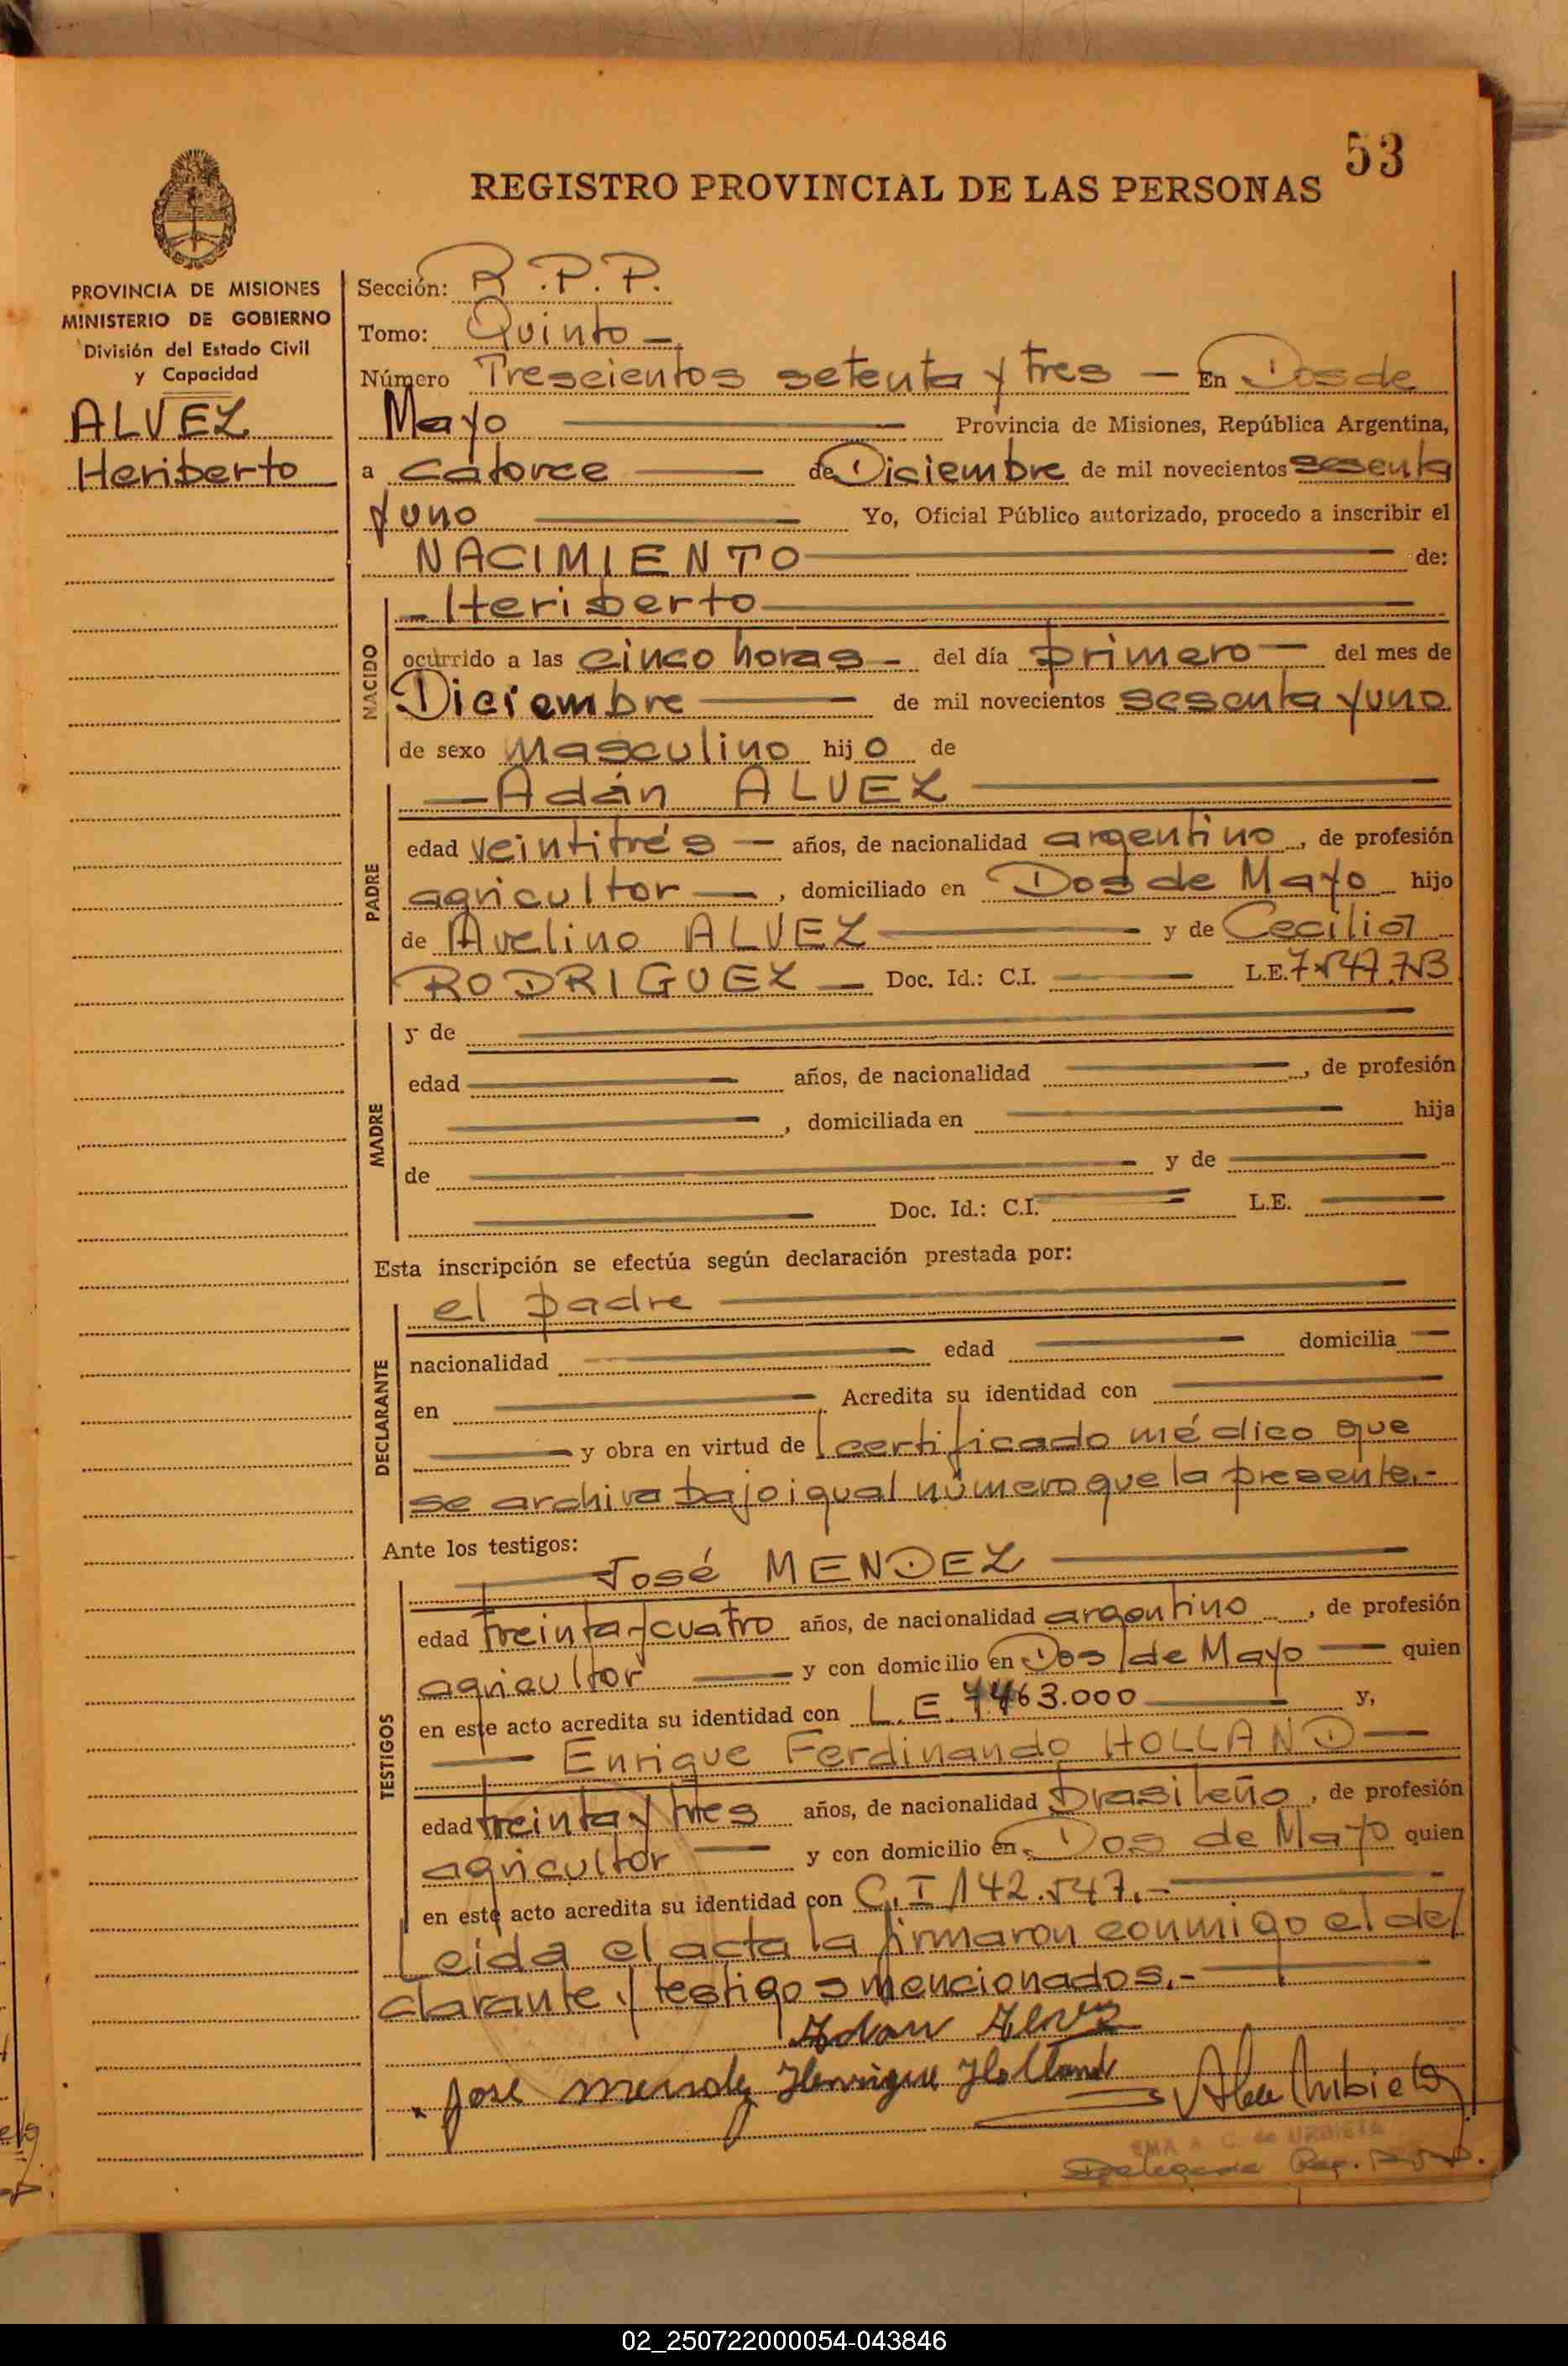 53
REGISTRO PROVINCIAL DE LAS PERSONAS
PROVINCIA DE MISIONES
MINISTERIO DE GOBIERNO
División del Estado Civil
y Capacidad
ALVEZ
Heriberto
Sección: R.P.P.
Tomo: Quinto —
Número Trescientos setenta y tres — En Dos de
Mayo Provincia de Misiones, República Argentina,
a catorce de Diciembre de mil novecientos sesenta
y uno Yo, Oficial Público autorizado, procedo a inscribir el
NACIMIENTO de:
NACIDO
Heriberto
ocurrido a las cinco horas — del día primero — del mes de
Diciembre de mil novecientos sesenta y uno
de sexo Masculino hijo de
PADRE
— Adán ALVEZ
edad veintitrés — años, de nacionalidad argentino, de profesión
agricultor —, domiciliado en Dos de Mayo hijo
de Avelino ALVEZ y de Cecilia
RODRIGUEZ — Doc. Id.: C.I. L.E. 7.547.753
MADRE
y de
edad años, de nacionalidad , de profesión
, domiciliada en hija
de y de
Doc. Id.: C.I. L.E.
Esta inscripción se efectúa según declaración prestada por:
DECLARANTE
el padre
nacionalidad edad domicilia
en Acredita su identidad con
y obra en virtud de certificado médico que
se archiva bajo igual número que la presente.-
Ante los testigos:
TESTIGOS
José MENDEZ
edad treinta y cuatro años, de nacionalidad argentino, de profesión
agricultor y con domicilio en Dos de Mayo — quien
en este acto acredita su identidad con L.E. 7.463.000 y,
— Enrique Ferdinando HOLLAND —
edad treinta y tres años, de nacionalidad brasileño, de profesión
agricultor y con domicilio en Dos de Mayo quien
en este acto acredita su identidad con C.I 142.547.-
Leida el acta la firmaron conmigo el de/
clarante y testigos mencionados.-
Adan Alvez
Jose Mendez Henrique Holland
EMA A. C. de URBIETA
02_250722000054-043846